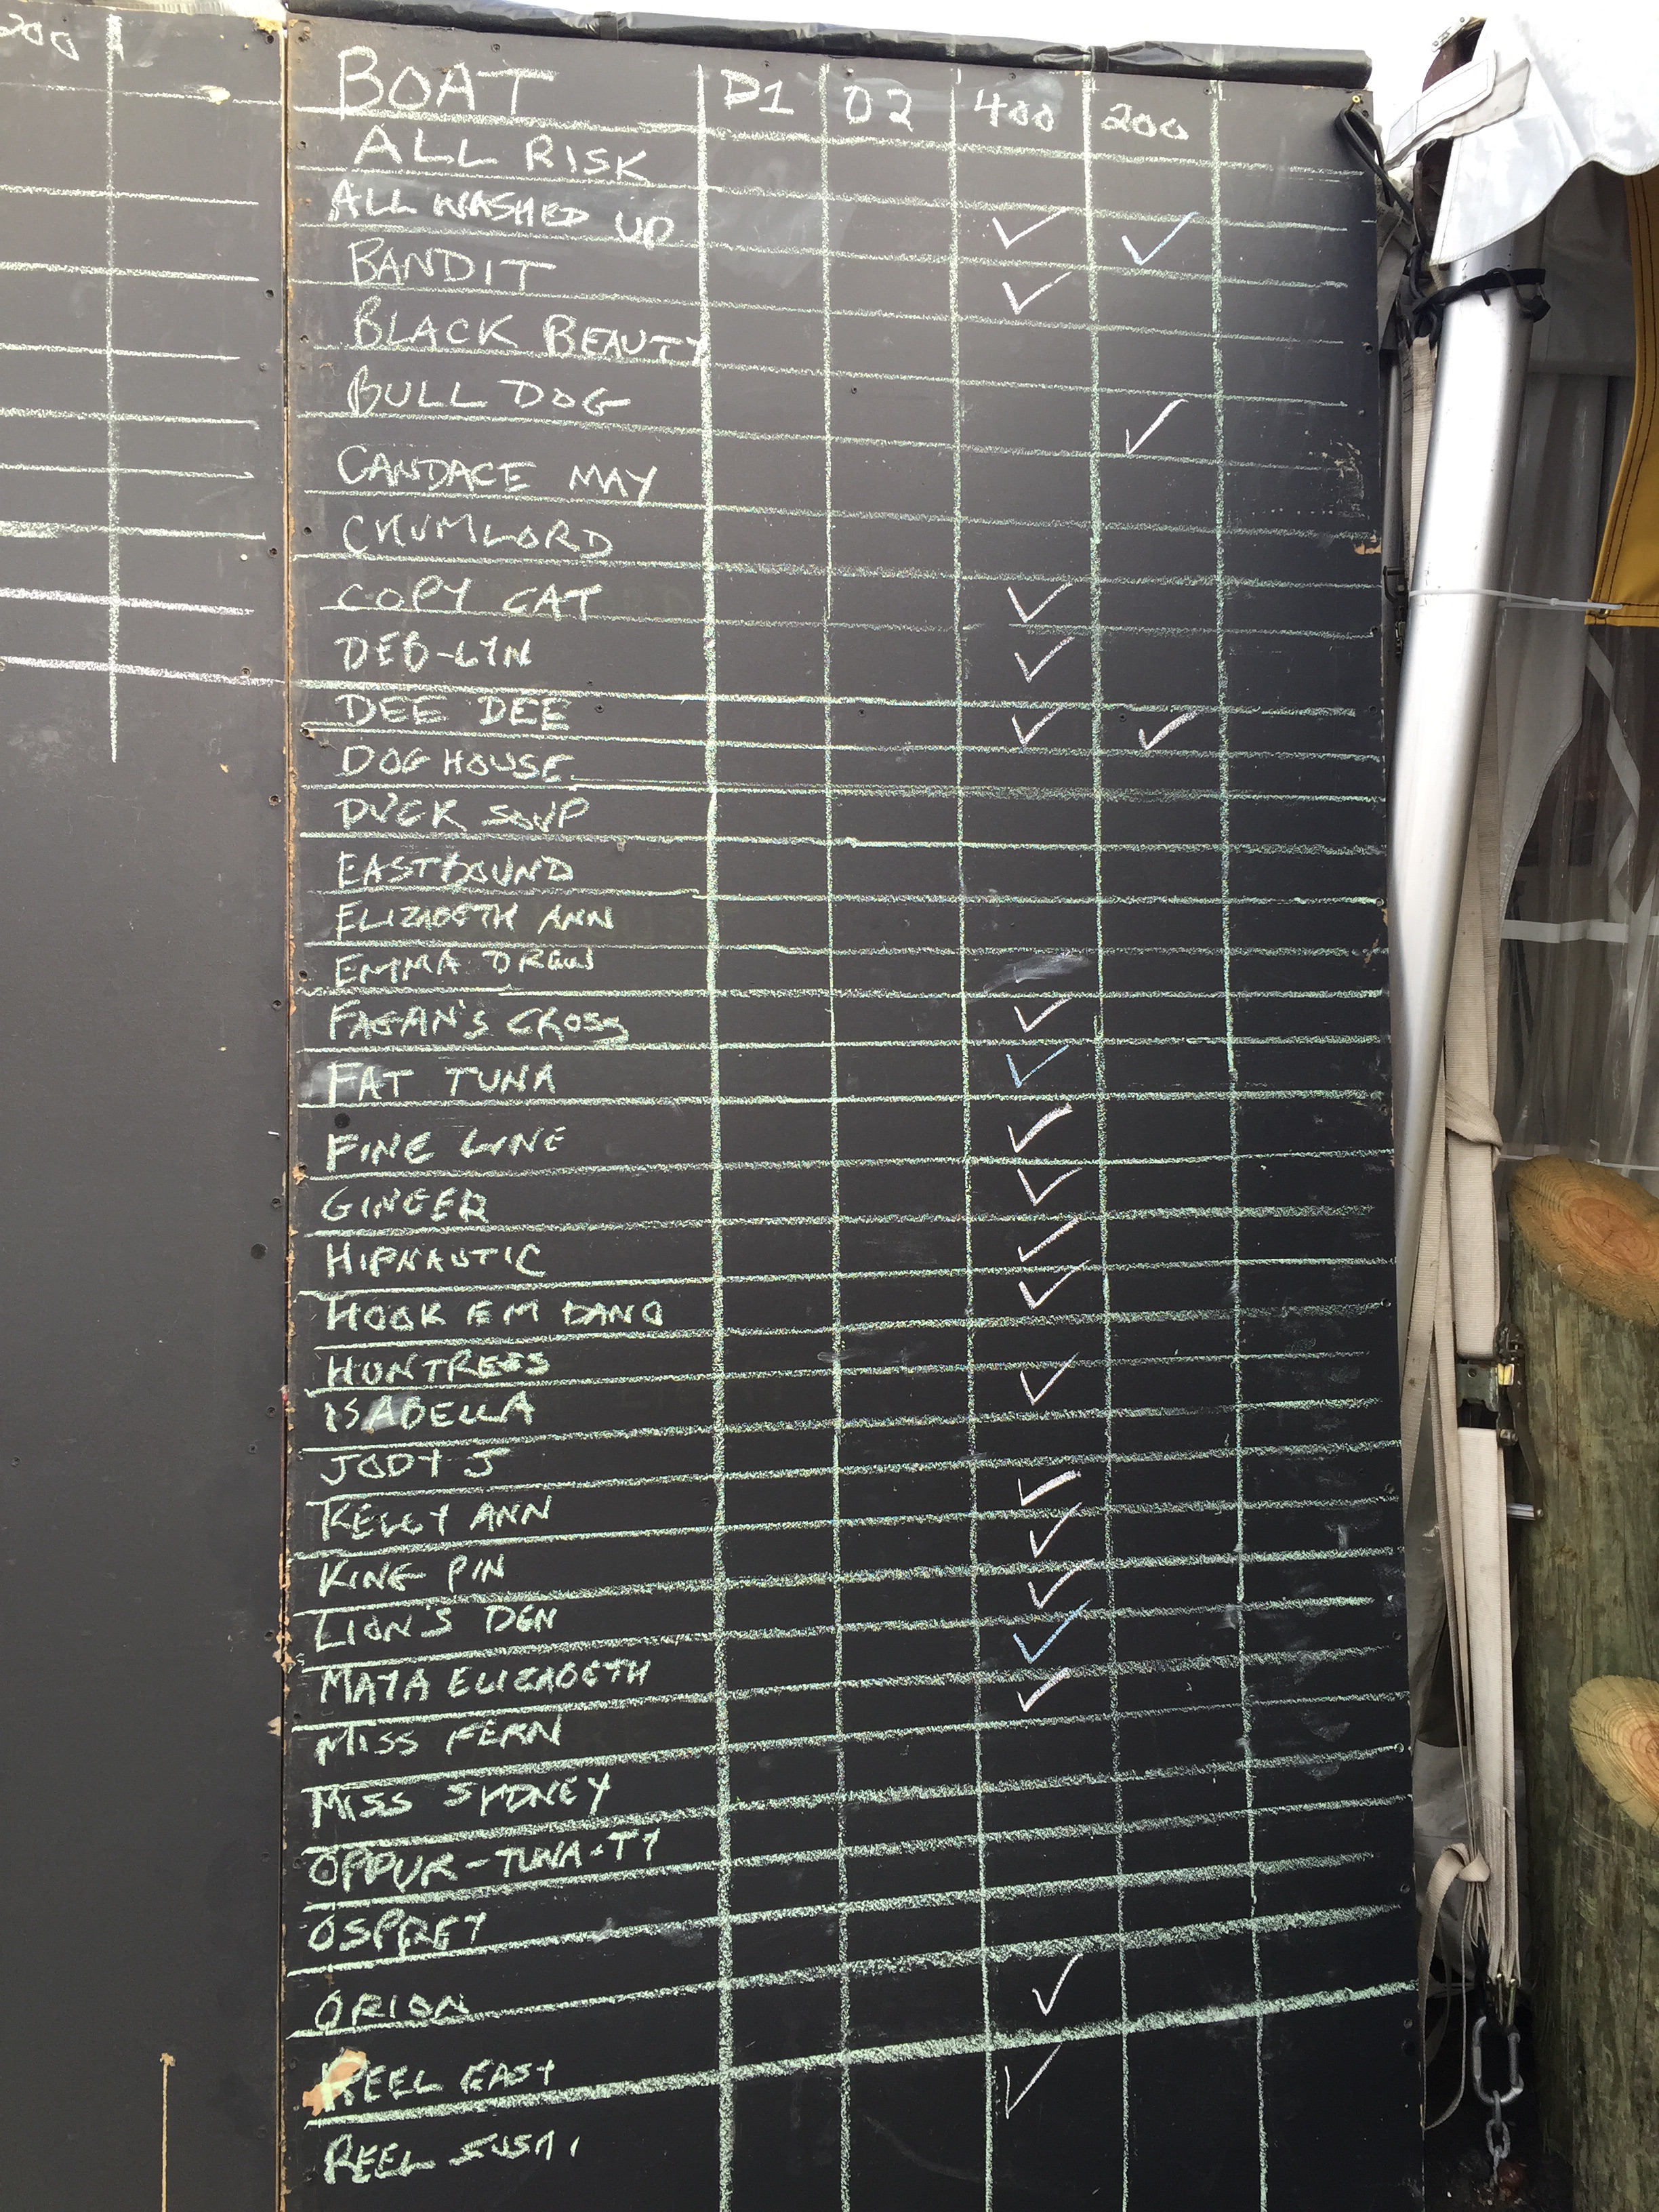 200
BOAT D1 D2 400 200
ALL RISK
ALL WASHED UP ✓ ✓
BANDIT ✓
BLACK BEAUTY
BULL DOG ✓
CANDACE MAY
CHUMLORD
COPY CAT ✓
DEB-LYN ✓
DEE DEE ✓ ✓
DOG HOUSE
DUCK SOUP
EASTBOUND
ELIZABETH ANN
EMMA DREW
FAGAN'S CROSS ✓
FAT TUNA ✓
FINE LINE ✓
GINGER ✓
HIPNAUTIC ✓
HOOK EM DANO ✓
HUNTRESS ✓
ISABELLA
JODY J
KELLY ANN ✓
KING PIN ✓
LION'S DEN ✓
MAYA ELIZABETH ✓
MISS FERN ✓
MISS SYDNEY
OPPUR-TUNA-TY
OSPREY
ORION ✓
REEL EASY ✓
REEL SUSHI